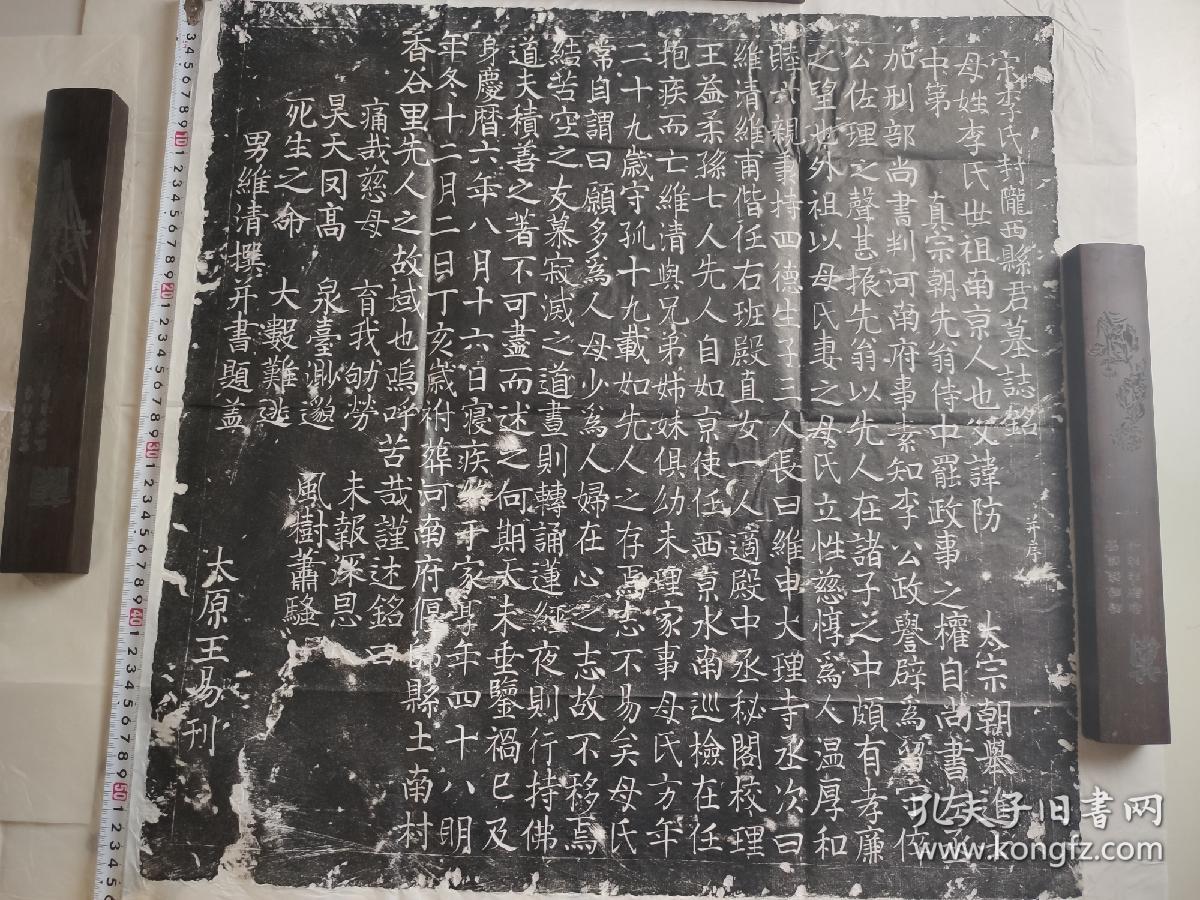 宋李氏封隴西縣君墓誌銘 并序
母姓李氏世祖南京人也父諱防 太宗朝舉進士
中第 真宗朝先翁侍中罷政事之權自尚書右丞
加刑部尚書判河南府事素知李公政譽辟為留守倅
公佐理之聲甚振先翁以先人在諸子之中頗有孝廉
之望也外祖以母氏妻之母氏立性慈惇為人温厚和
睦六親兼持四德生子三人長曰維申大理寺丞次曰
維清維甫偕任右班殿直女一人適殿中丞秘閣校理
王益柔孫七人先人自如京使任西京水南巡檢在任
抱疾而亡維清與兄弟姊妹俱幼未理家事母氏方年
二十九歲守孤十九載如先人之存焉志不易矣母氏
常自謂曰願多為人母少為人婦在心之志故不移焉
結苦空之友慕寂滅之道晝則轉誦蓮經夜則行持佛
道夫積善之著不可盡而述之何期天未垂鑒禍已及
身慶曆六年八月十六日寢疾終于家享年四十八明
年冬十二月二日丁亥歲祔葬河南府偃師縣土南村
香谷里先人之故域也嗚呼苦哉謹述銘曰
痛哉慈母 育我劬勞 未報深恩
昊天罔高 泉臺渺邈 風樹蕭騷
死生之命 大艱難逃
男維清撰并書題蓋
太原王易刊
孔夫子旧书网
www.kongfz.com